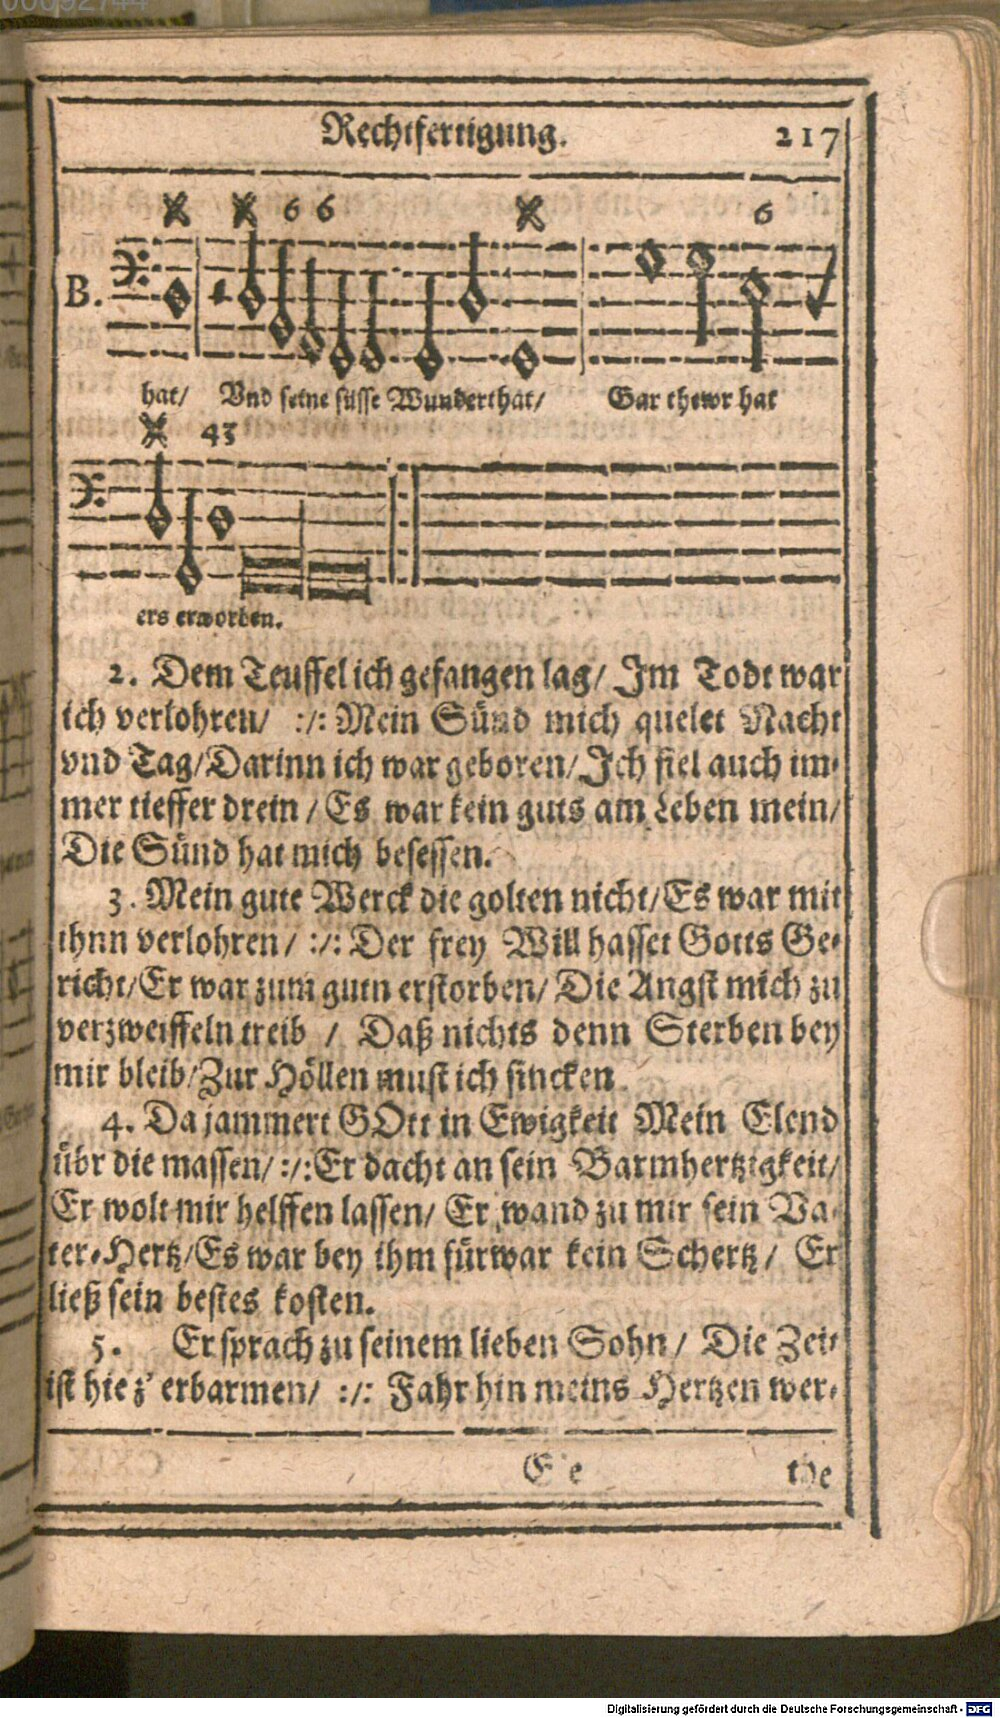 00092744
Rechtfertigung. 217
6 6 6
B.
hat/ Vnd seine süsse Wunderthat/ Gar thewr hat
43
ers erworben.
2. Dem Teuffel ich gefangen lag/ Im Todt war
ich verlohren/ :/: Mein Sünd mich quelet Nacht
vnd Tag/Darinn ich war geboren/Ich fiel auch im-
mer tieffer drein / Es war kein guts am Leben mein/
Die Sünd hat mich besessen.
3. Mein gute Werck die golten nicht/Es war mit
ihnn verlohren / :/: Der frey Will hasset Gotts Ge-
richt/Er war zum gutn erstorben/ Die Angst mich zu
verzweiffeln treib / Daß nichts denn Sterben bey
mir bleib/Zur Höllen must ich sincken.
4. Da jammert GOtt in Ewigkeit Mein Elend
übr die massen/ :/:Er dacht an sein Barmhertzigkeit/
Er wolt mir helffen lassen/ Er wand zu mir sein Va-
ter-Hertz/Es war bey ihm fürwar kein Schertz / Er
ließ sein bestes kosten.
5. Er sprach zu seinem lieben Sohn / Die Zeit
ist hie z' erbarmen/ :/: Fahr hin meins Hertzen wer-
the
Digitalisierung gefördert durch die Deutsche Forschungsgemeinschaft - DFG